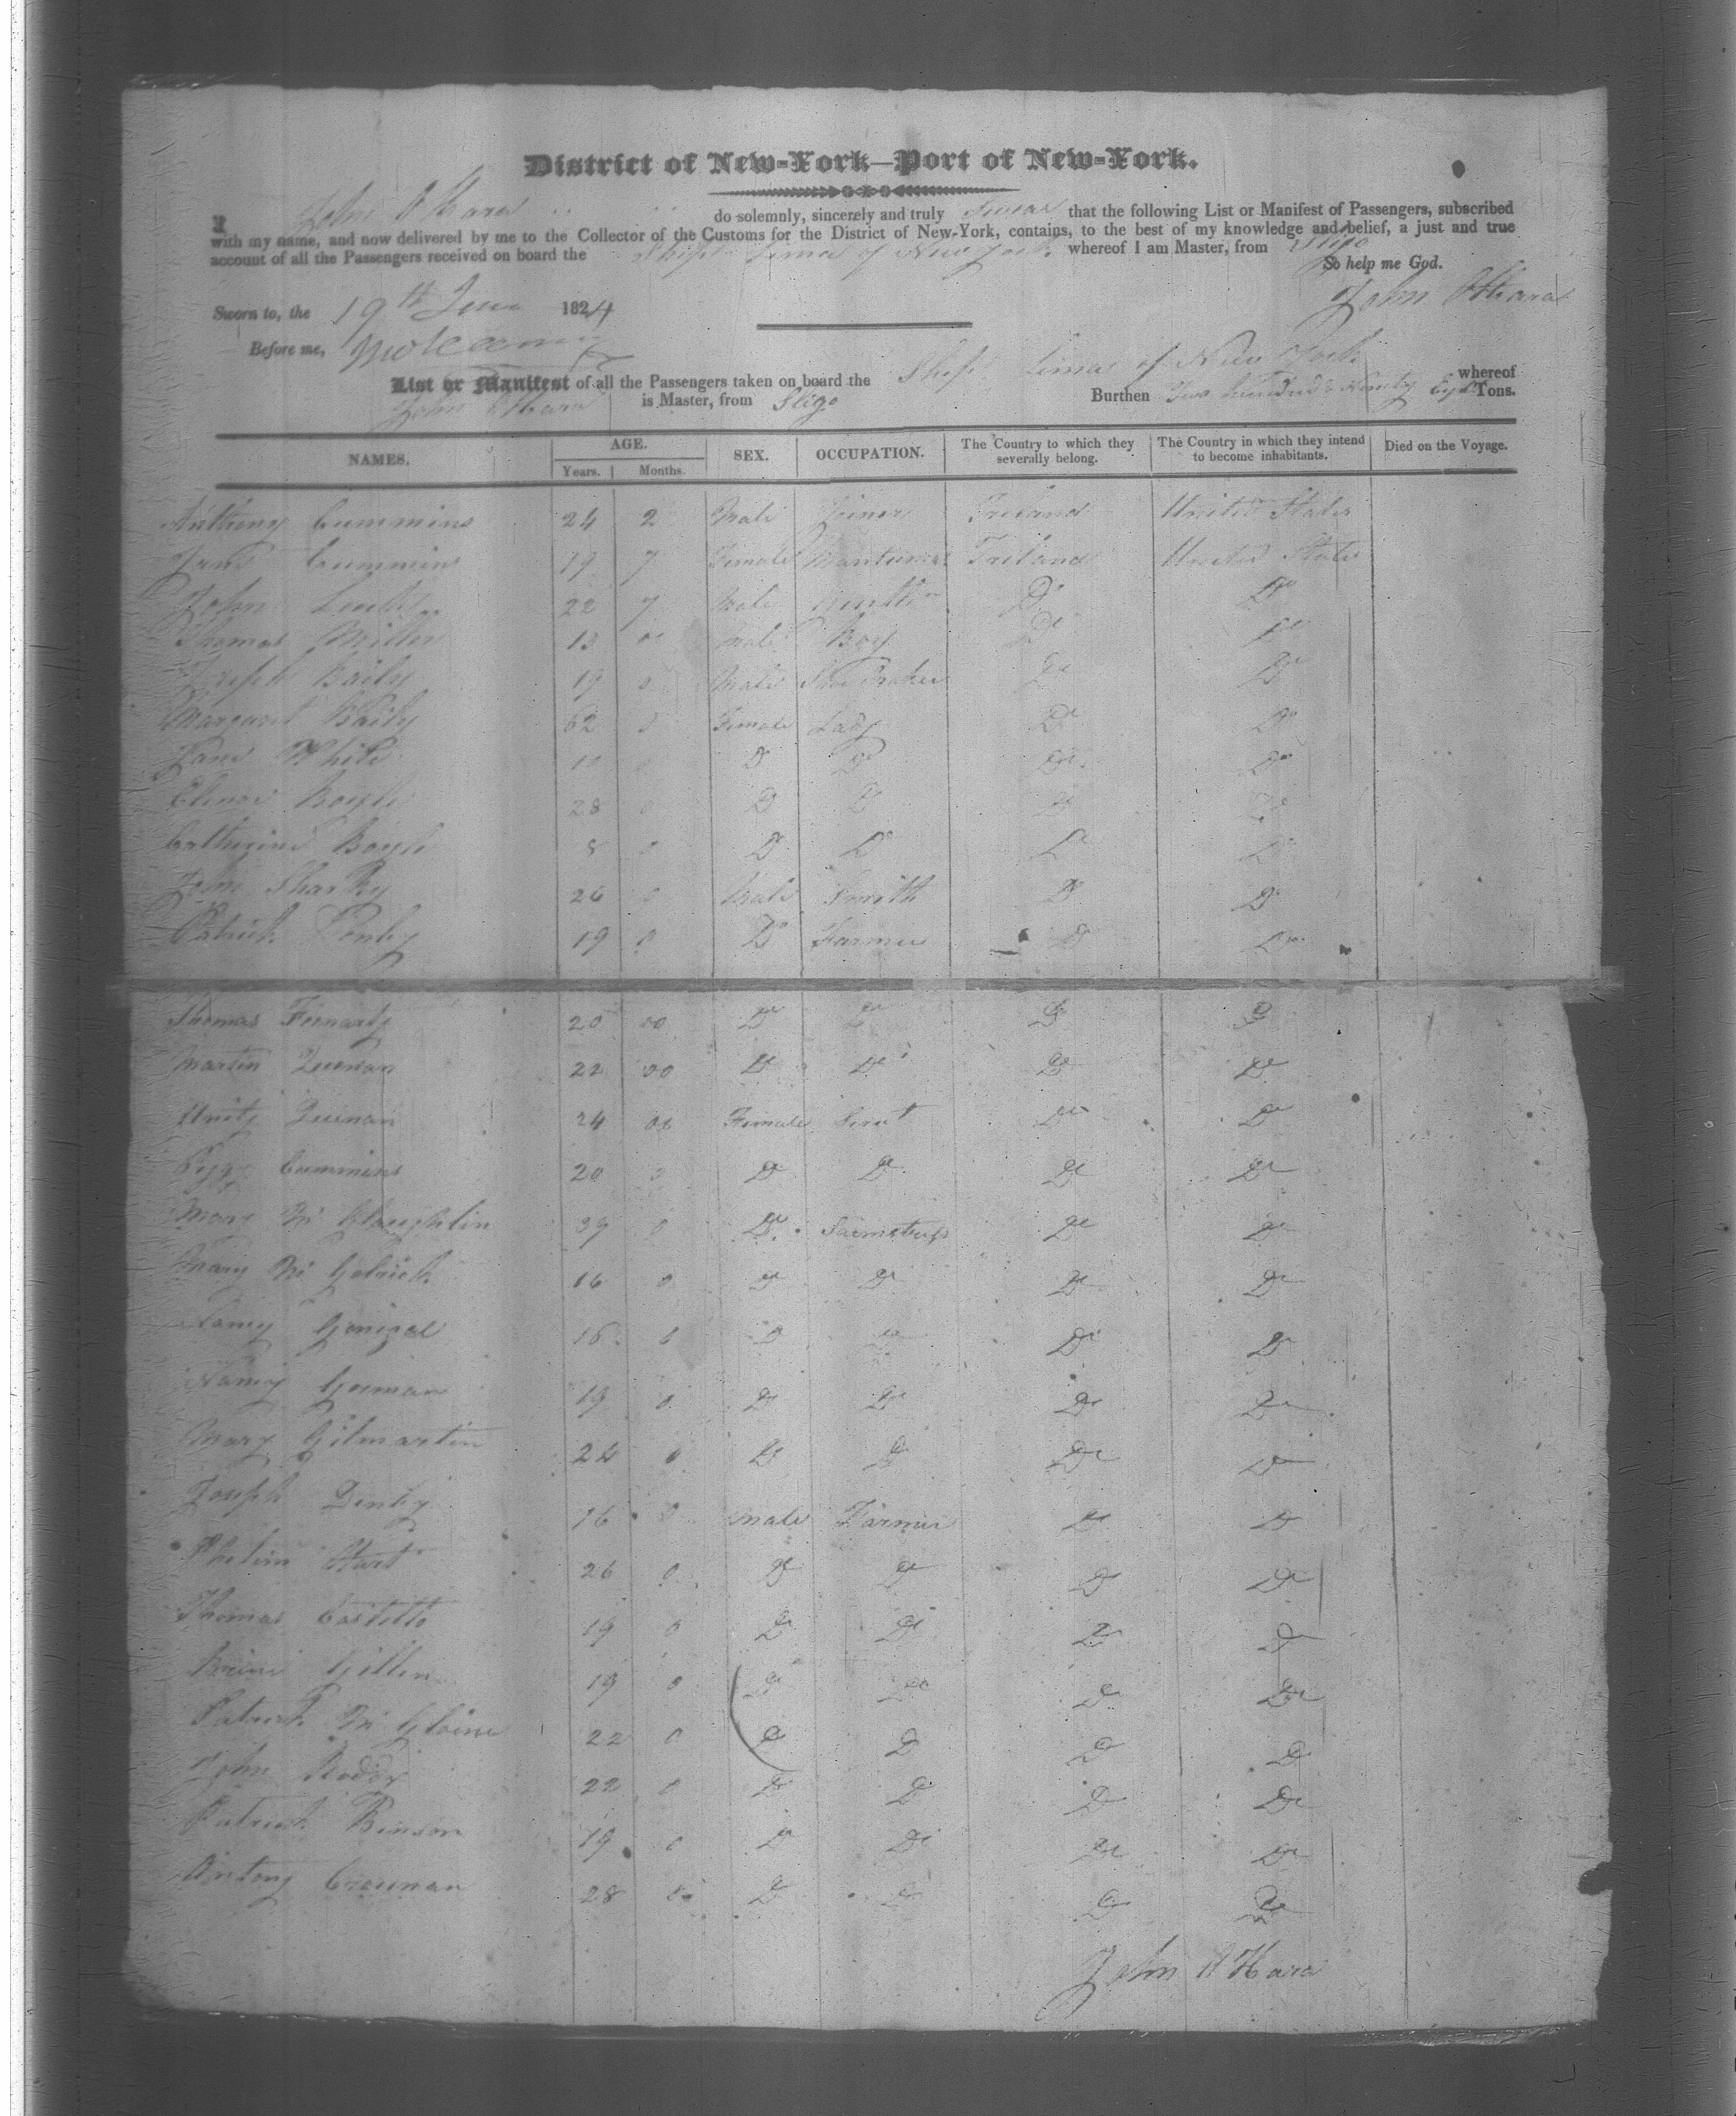 District of New-York—Port of New-York.
I John OHara do solemnly, sincerely and truly Swear that the following List or Manifest of Passengers, subscribed
with my name, and now delivered by me to the Collector of the Customs for the District of New-York, contains, to the best of my knowledge and belief, a just and true
account of all the Passengers received on board the Ship Lima of New York whereof I am Master, from Sligo
So help me God.
John OHara
Sworn to, the 19th June 1824
Before me,
List or Manifest of all the Passengers taken on board the Ship Lima of New York whereof
John OHara is Master, from Sligo Burthen Two hundred & Ninety Eight Tons.
NAMES. AGE. SEX. OCCUPATION. The Country to which they severally belong. The Country in which they intend to become inhabitants. Died on the Voyage.
Years. Months.
Anthony Cummins 24 2 Male Joiner Ireland United States
Jane Cummins 19 7 Female Ireland United States
John 22 7 Male Do Do
Thomas Miller 13 00 Male Boy Do Do
Joseph Baily 19 0 Male Shoe Maker Do Do
Margaret Baily 62 0 Female Lady Do Do
Jane White 0 Do Do Do Do
Elenor Boyle 28 0 Do Do Do Do
Catherine Boyle 8 0 Do Do Do Do
John Sharky 26 0 Male Smith Do Do
Patrick 19 0 Do Farmer Do Do
Thomas Finnarty 20 00 Do Do Do Do
Martin 22 00 Do Do Do Do
Unity 24 00 Female Servt Do Do
Pegy Cummins 20 0 Do Do Do Do
Mary Mc Glaughlin 39 0 Do Seamstress Do Do
Mary Mc Golrick 16 0 Do Do Do Do
Gonigal 16 0 Do Do Do Do
Nancy Gorman 19 0 Do Do Do Do
Mary Gilmartin 24 0 Do Do Do Do
Joseph 16 0 Male Farmer Do Do
Phelim Hart 26 0 Do Do Do Do
Thomas Costello 19 0 Do Do Do Do
Gillen 19 0 Do Do Do Do
Patrick Mc Gloine 22 0 Do Do Do Do
John Roddy 22 0 Do Do Do Do
Patrick Binson 19 0 Do Do Do Do
Antony 28 00 Do Do Do Do
John OHara